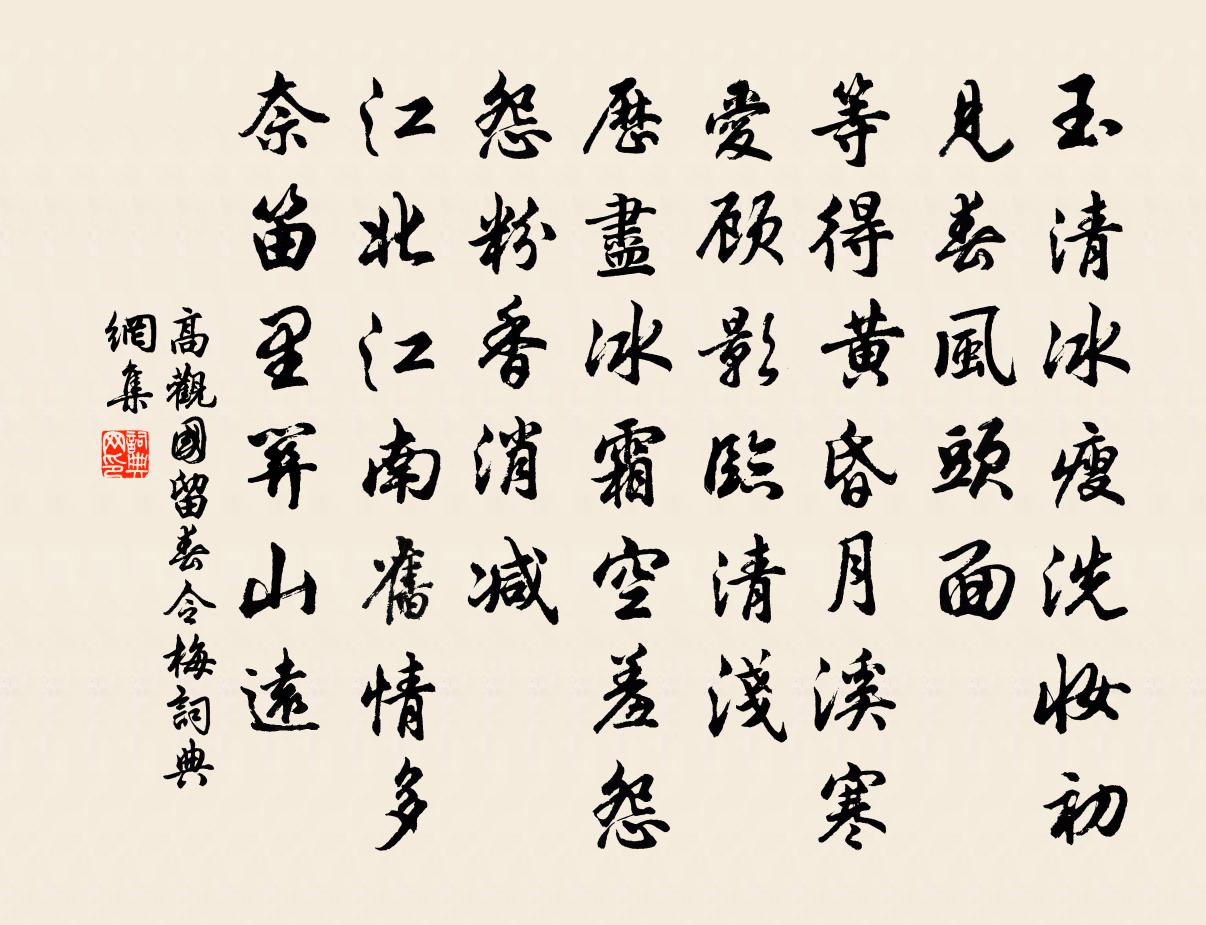 玉清冰瘦洗妆初
見春風頭面
等得黄昏月溪寒
愛顾影臨清淺
歷盡冰霜空羞怨
怨粉香消减
江北江南舊情多
奈笛里関山遠
高觀國留春令梅詞典
網集
詞典
网印